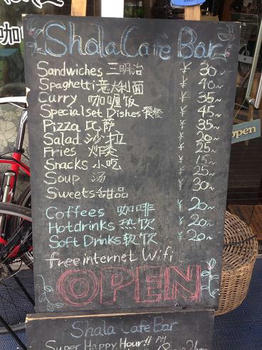 Shala Cafe Bar
Sandwiches 三明治 ¥ 30~
Spaghetti 意大利面 ¥ 40~
Curry 咖喱饭 ¥ 35~
Special set Dishes 套餐 ¥ 45~
Pizza 比萨 ¥ 35~
Salad 沙拉 ¥ 25~
Fries 炸条 ¥ 15~
Snacks 小吃 ¥ 25~
Soup 汤 ¥ 30~
Sweets 甜品 ¥ 20~
Coffees 咖啡 ¥ 20~
Hotdrinks 热饮 ¥ 20~
Soft Drinks 软饮 ¥ 20~
free internet Wifi
OPEN
Shala Cafe Bar
Super Happy Hour!!
open
咖